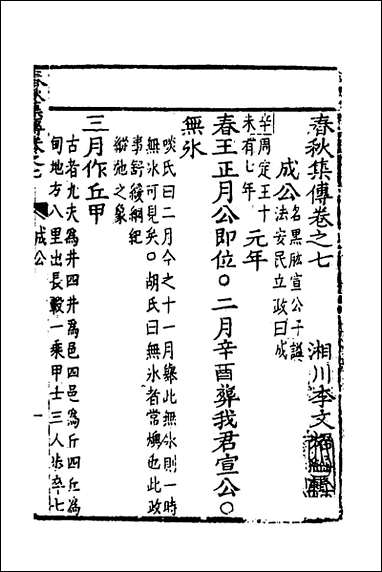 春秋集傳卷之七 湘川李文
成公 名黑肱宣公子諡
法安民立政曰成
辛周定王十
未有七年
元年
春王正月公即位〇二月辛酉葬我君宣公〇
無氷
啖氏曰二月今之十一月舉此無氷則一時
無氷可見矣〇胡氏曰無氷者常燠也此政
事舒緩綱紀
縱弛之象
三月作丘甲
古者九夫為井四井為邑四邑為丘四丘為
甸地方八里出長轂一乘甲士三人步卒七
成公
一